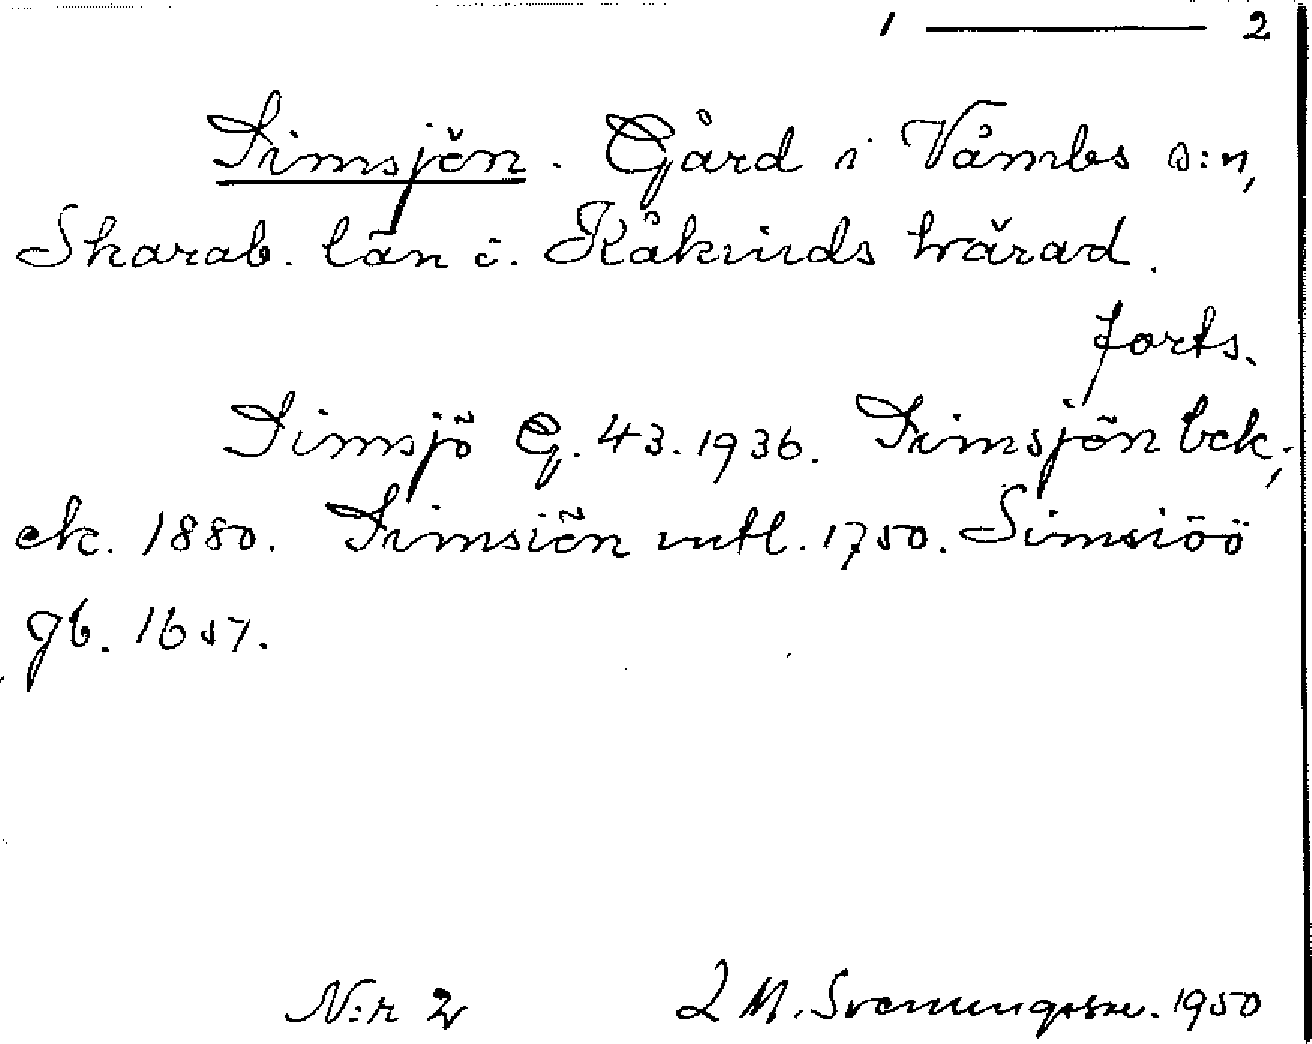 1 ——— 2
Simsjön. Gård i Våmbs s:n,
Skarab. län i. Kåkinds härad.
forts.
Simsjö G. 43. 1936. Simsjön bck;
ek. 1880. Simsiön mtl. 1750. Simsiöö
gb. 1657.
N:r 2 M. Svenungsson. 1950